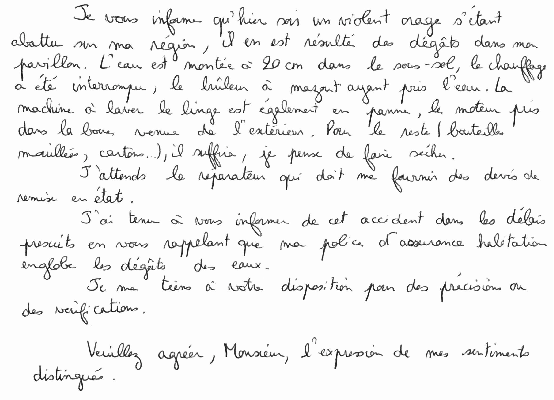 Je vous informe qu'hier soir un violent orage s'étant
abattu sur ma région, il en est résulté des dégâts dans mon
pavillon. L'eau est montée à 20 cm dans le sous-sol, le chauffage
a été interrompu, le brûleur à mazout ayant pris l'eau. La
machine à laver le linge est également en panne, le moteur pris
dans la boue venue de l'extérieur. Pour le reste (bouteilles
mouillées, cartons...), il suffira, je pense de faire sécher.
J'attends le réparateur qui doit me fournir des devis de
remise en état.
J'ai tenu à vous informer de cet accident dans les délais
prescrits en vous rappelant que ma police d'assurance habitation
englobe les dégâts des eaux.
Je me tiens à votre disposition pour des précisions ou
des vérifications.
Veuillez agréer, Monsieur, l'expression de mes sentiments
distingués.